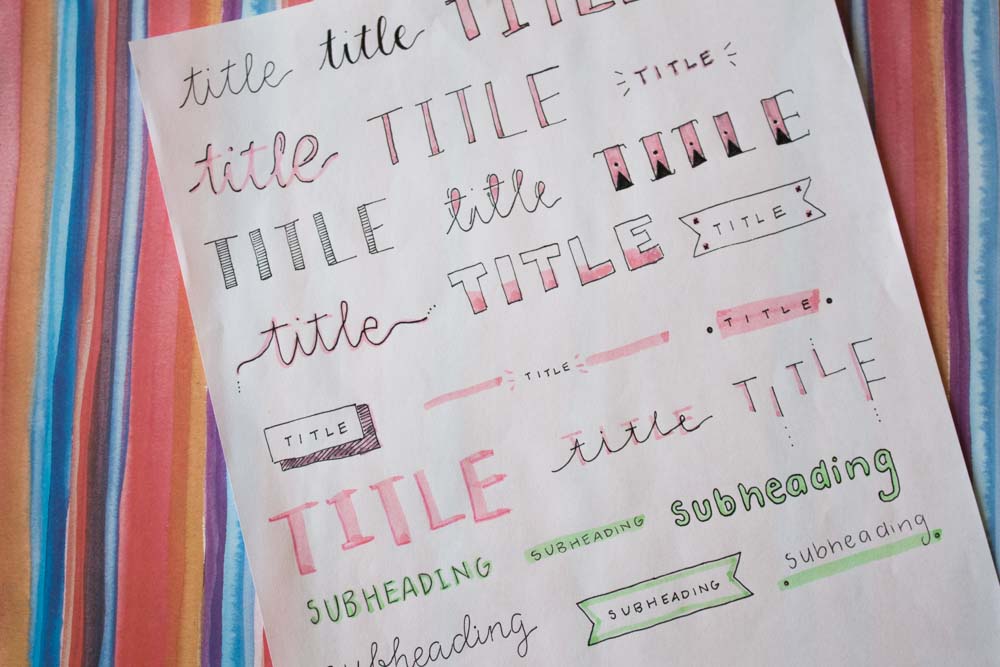 title title TITLE
title TITLE TITLE
TITLE title TITLE
title TITLE TITLE
TITLE TITLE
TITLE title TITLE
TITLE
SUBHEADING SUBHEADING subheading
subheading SUBHEADING subheading